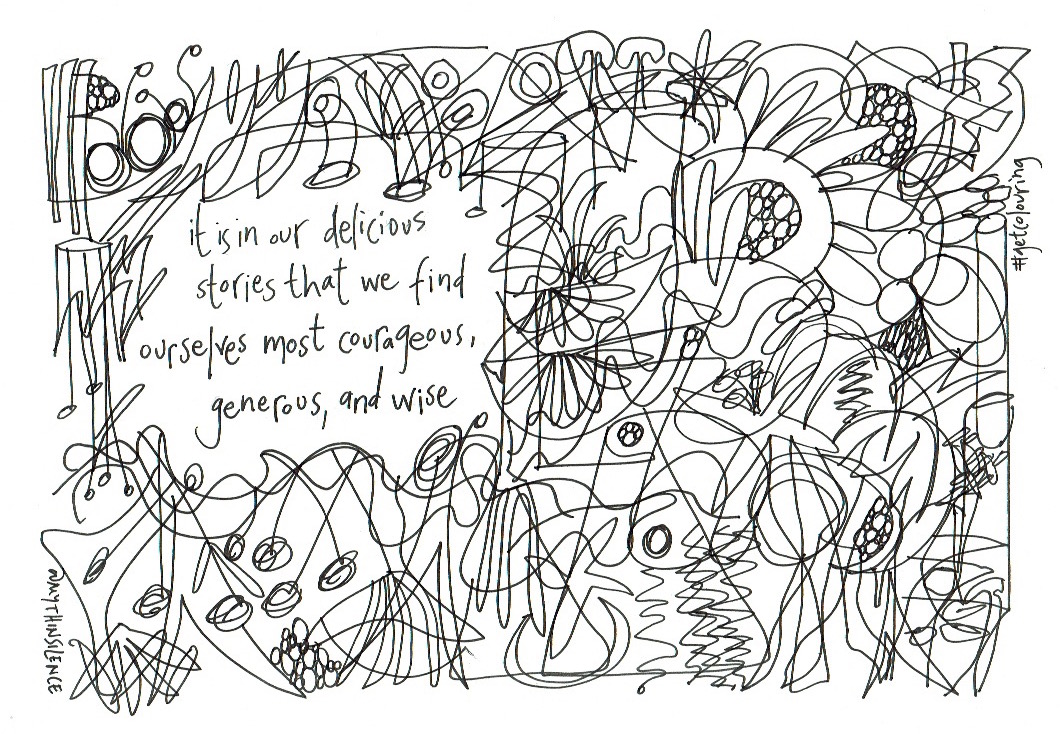 it is in our delicious
stories that we find
ourselves most courageous,
generous, and wise
#getcolouring
@MYTHINSILENCE